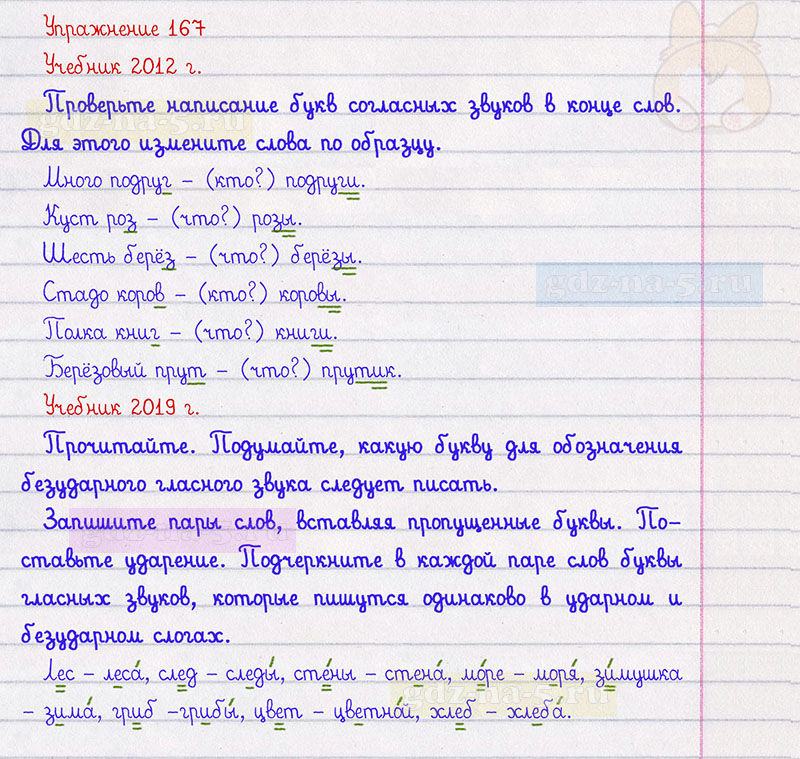 Упражнение 167
Учебник 2012 г.
Проверьте написание букв согласных звуков в конце слов.
gdz-na-5.ru
Для этого измените слова по образцу.
Много подруг – (кто?) подруги.
Куст роз – (что?) розы.
Шесть берёз – (что?) берёзы.
gdz-na-5.ru
Стадо коров – (кто?) коровы.
Полка книг – (что?) книги.
Берёзовый прут – (что?) прутик.
Учебник 2019 г.
Прочитайте. Подумайте, какую букву для обозначения
безударного гласного звука следует писать.
Запишите пары слов, вставляя пропущенные буквы. По-
gdz-na-5.ru
ставьте ударение. Подчеркните в каждой паре слов буквы
гласных звуков, которые пишутся одинаково в ударном и
безударном слогах.
Лес – леса́, след – следы́, сте́ны – стена́, мо́ре – моря́, зи́мушка
gdz-na-5.ru
– зима́, гриб –грибы́, цвет – цветна́й, хлеб – хлеба́.